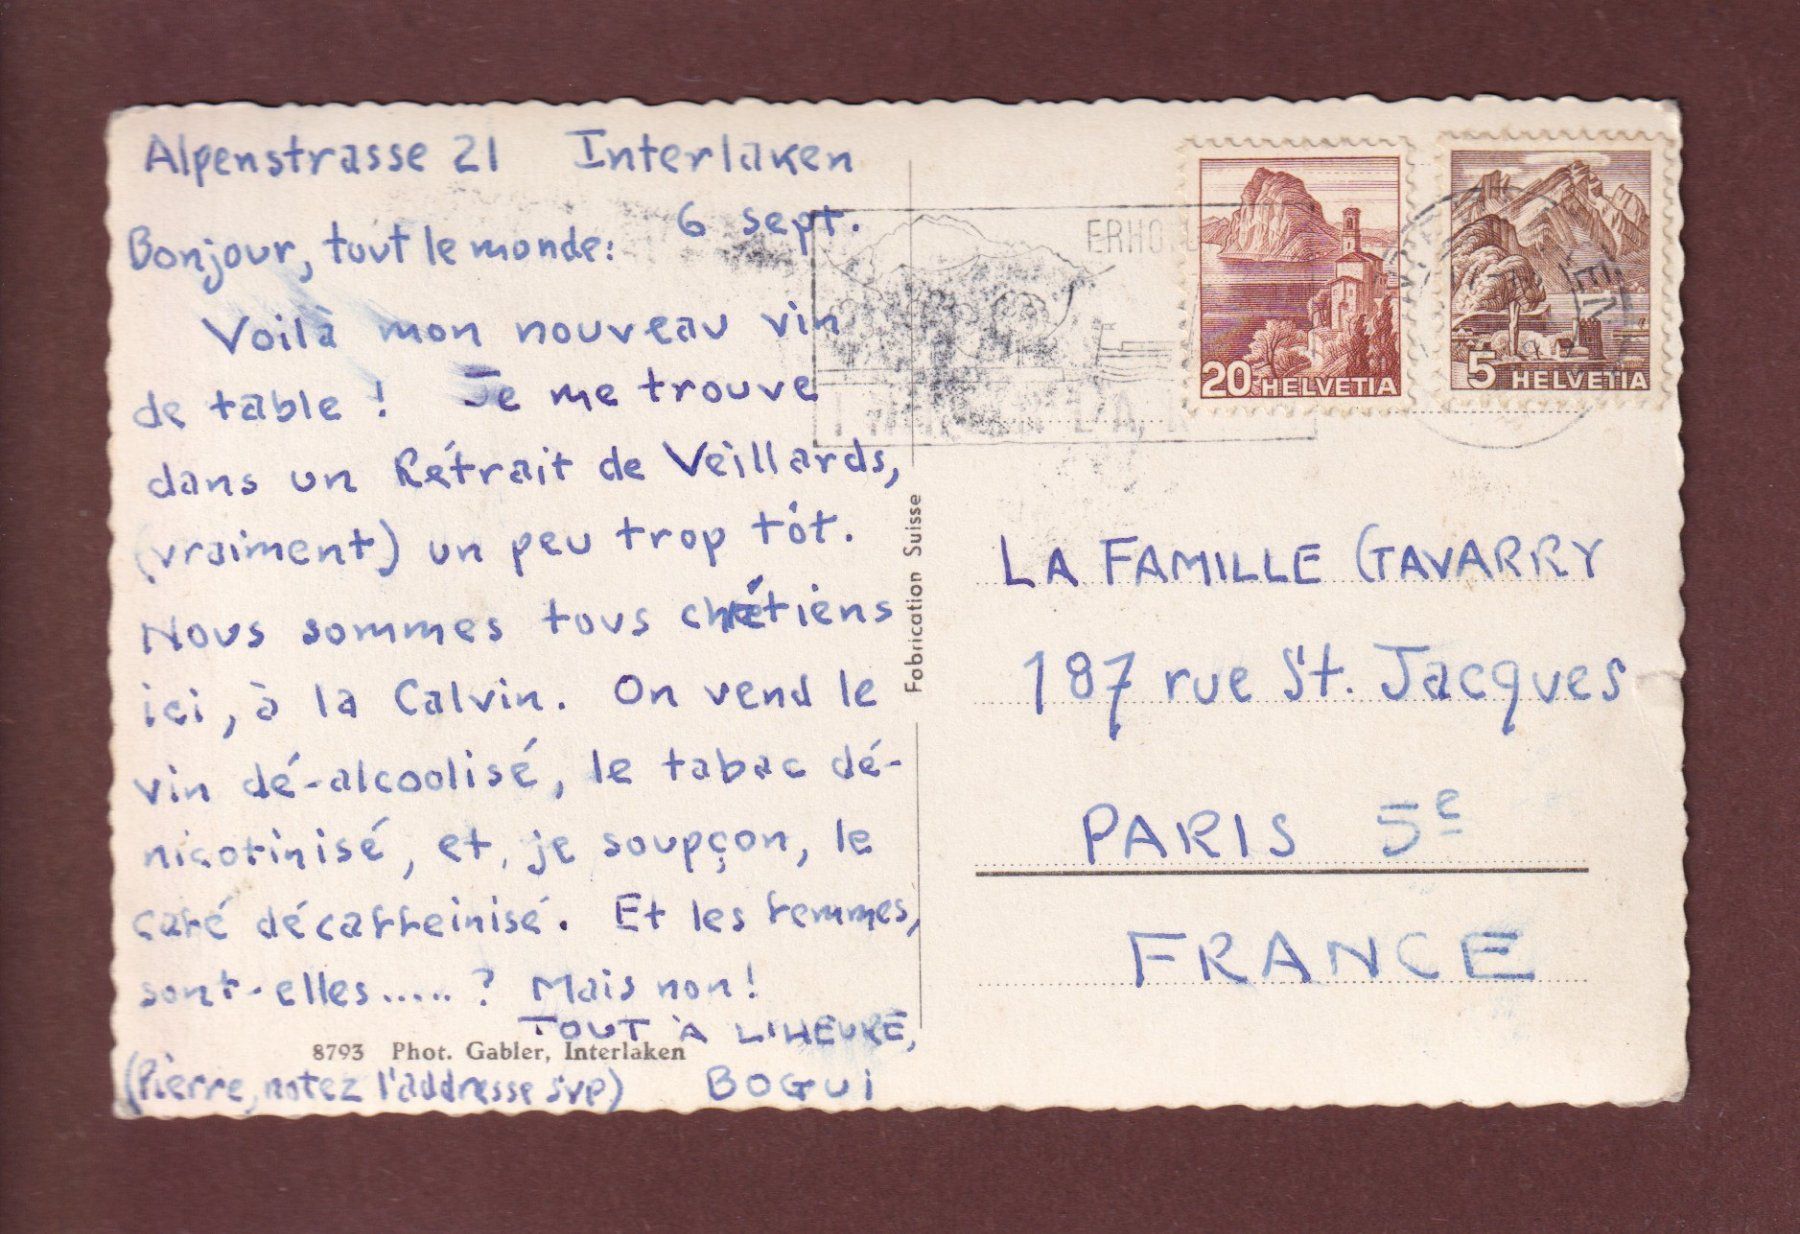 Alpenstrasse 21 Interlaken
6 sept.
Bonjour, tout le monde:
Voilà mon nouveau vin
de table! Je me trouve
dans un Rétrait de Veillards,
(vraiment) un peu trop tôt.
Nous sommes tous chrétiens
ici, à la Calvin. On vend le
vin dé-alcoolisé, le tabac dé-
nicotinisé, et, je soupçon, le
café décaffeinisé. Et les femmes,
sont-elles.....? Mais non!
TOUT À L'HEURE,
8793 Phot. Gabler, Interlaken
(Pierre, notez l'addresse svp) BOGUI
Fabrication Suisse
20 HELVETIA
5 HELVETIA
LA FAMILLE GAVARRY
187 rue St. Jacques
PARIS 5e
FRANCE